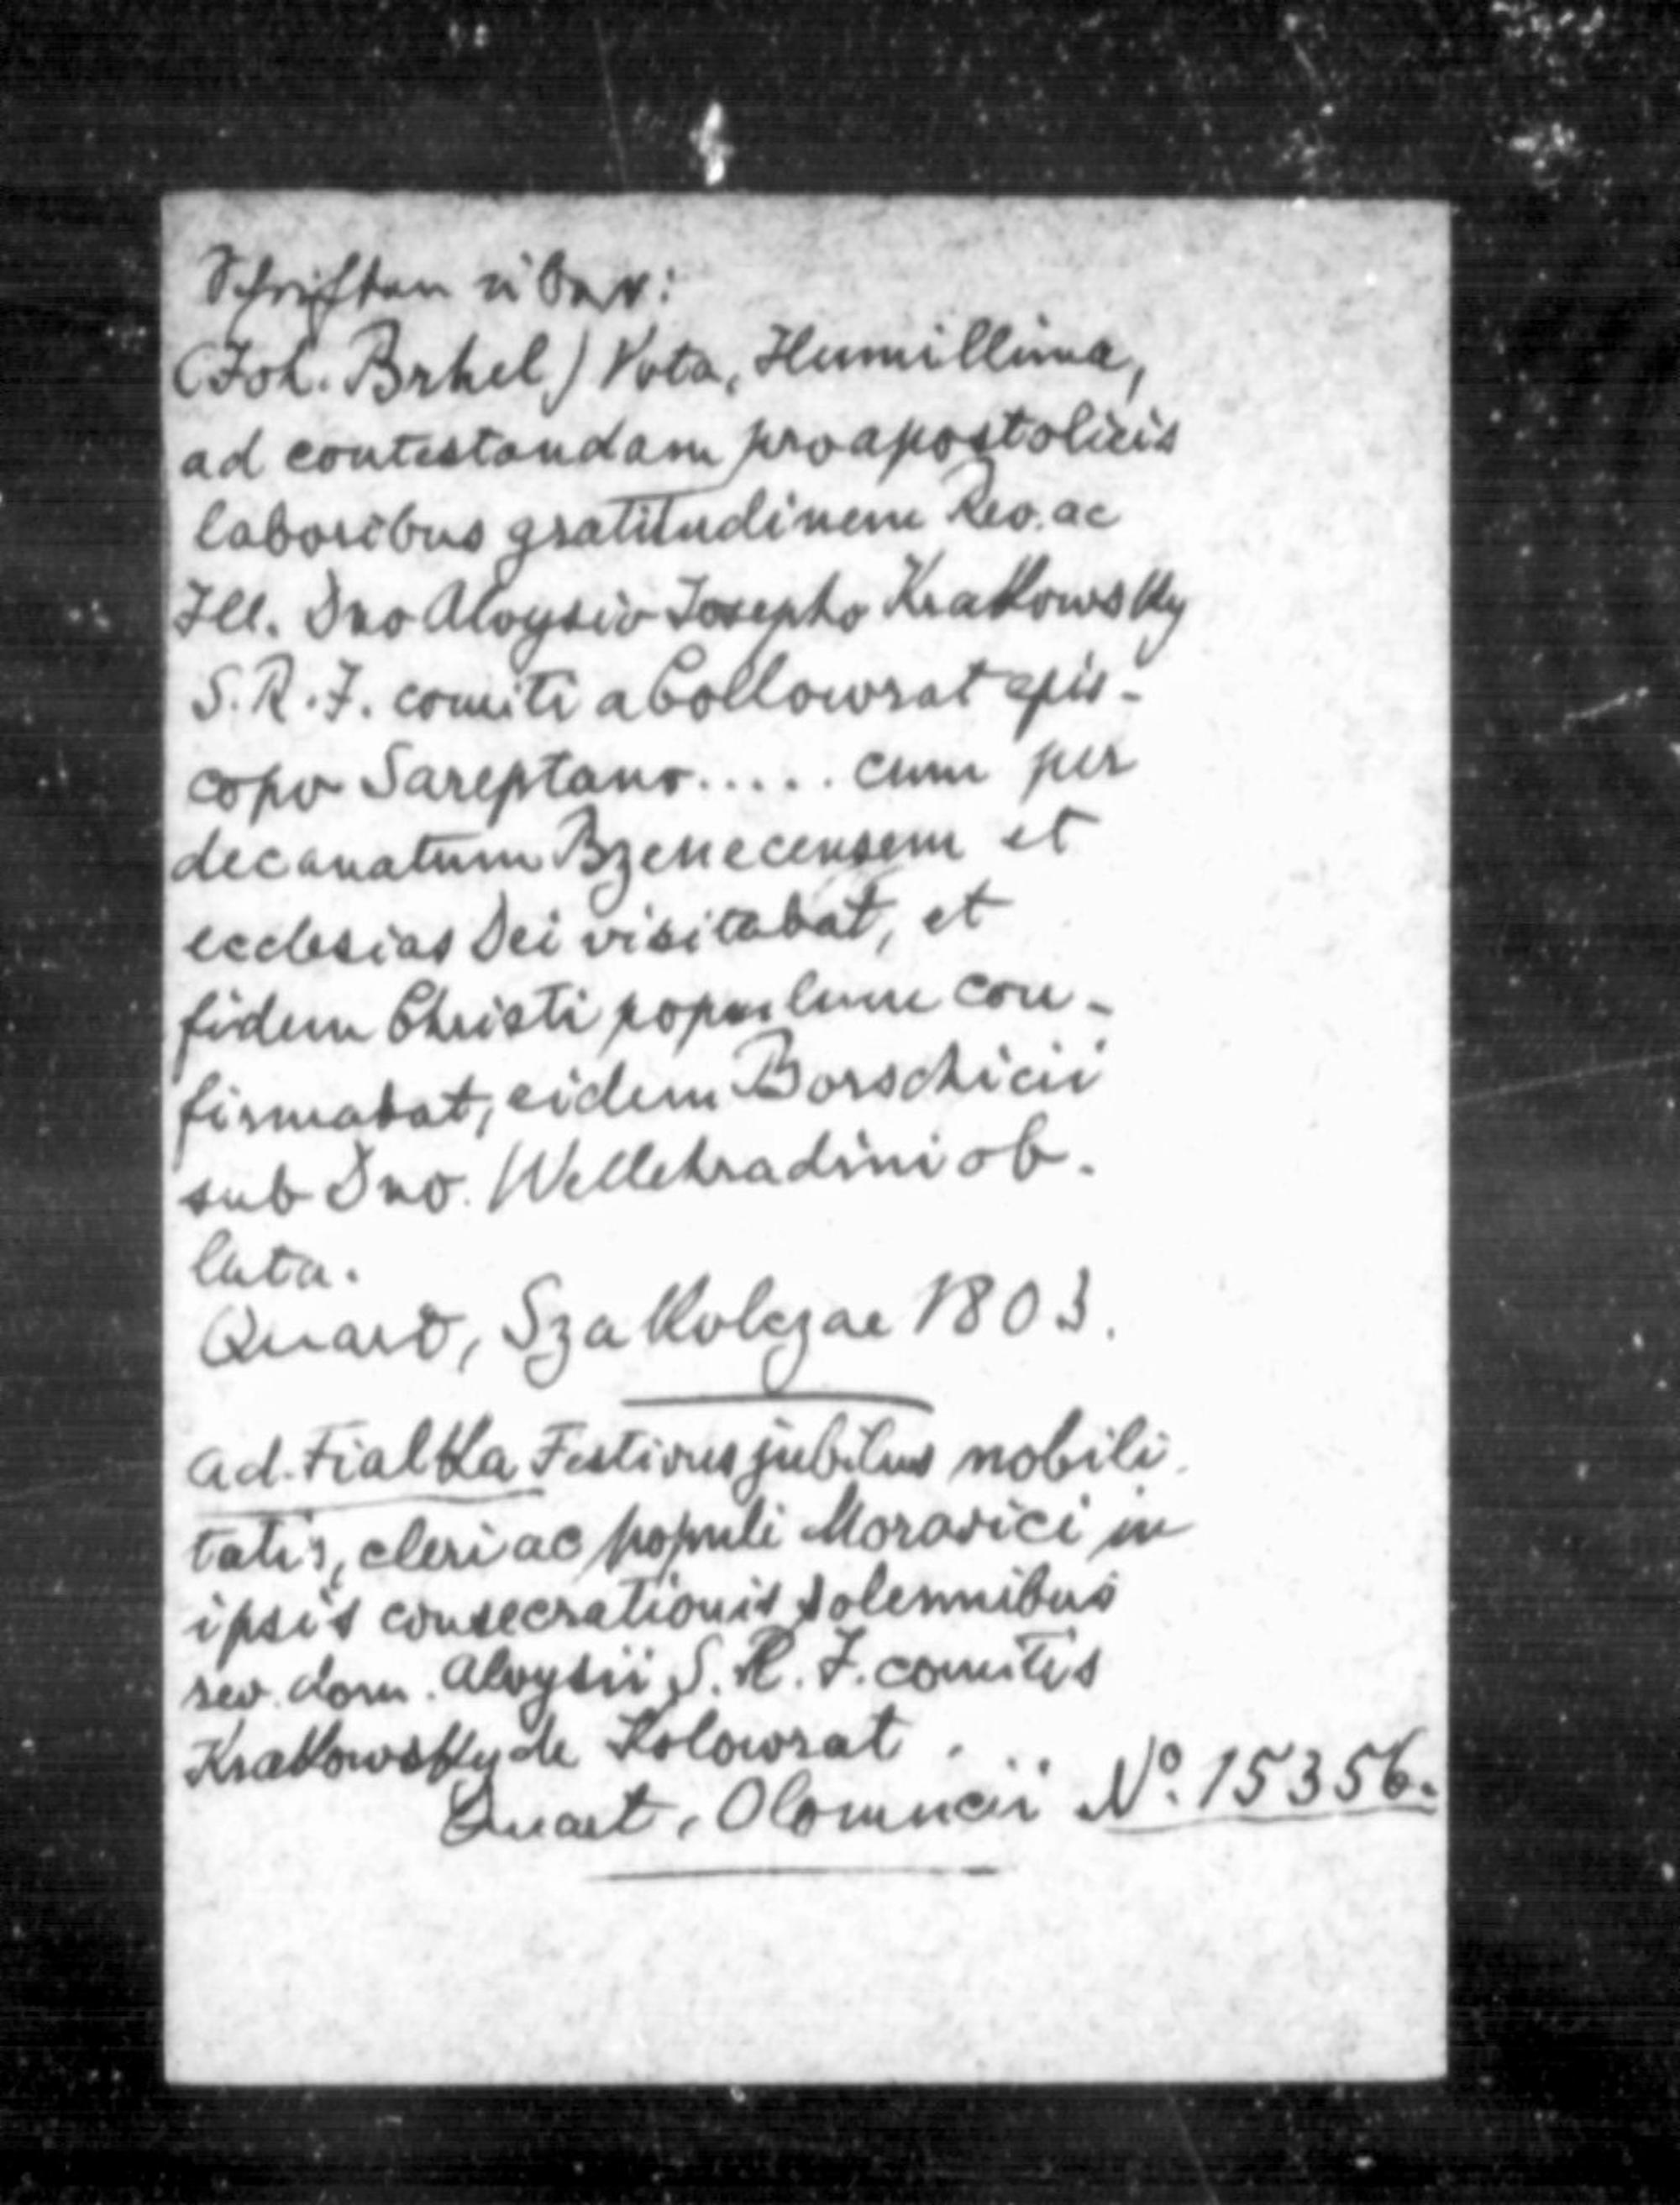 Schriften über:
(Joh. Brhel) Vota, Humillima,
ad contestandam pro apostolicis
laboribus gratitudinem Rev. ac
Ill. Dno Aloysio Josepho Krakowsky
S. R. I. comiti a Collowrat epis-
copo Sareptano..... cum per
decanatum Bzenecensem et
ecclesias Dei visitabat, et
fidem Christi populum con-
firmabat, eidem Borschicii
sub Dno. Wellehradini ob.
lata.
Quart, Szakolczae 1803.
Ad. Fialka Festivus jubilus nobili.
tatis, cleri ac populi Moravici in
ipsis consecrationis solemnibus
rev. dom. Aloysii S. R. I. comitis
Krakowsky de Kolowrat .
Quart, Olomucii No. 15356.